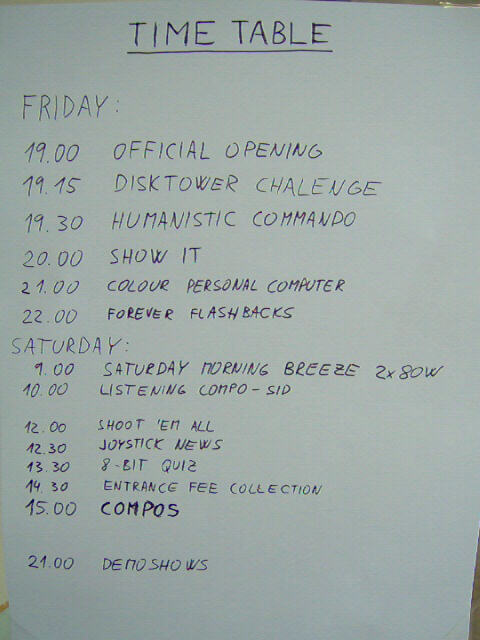 TIME TABLE
FRIDAY:
19.00 OFFICIAL OPENING
19.15 DISKTOWER CHALENGE
19.30 HUMANISTIC COMMANDO
20.00 SHOW IT
21.00 COLOUR PERSONAL COMPUTER
22.00 FOREVER FLASHBACKS
SATURDAY:
9.00 SATURDAY MORNING BREEZE 2x80W
10.00 LISTENING COMPO-SID
12.00 SHOOT 'EM ALL
12.30 JOYSTICK NEWS
13.30 8-BIT QUIZ
14.30 ENTRANCE FEE COLLECTION
15.00 COMPOS
21.00 DEMOSHOWS